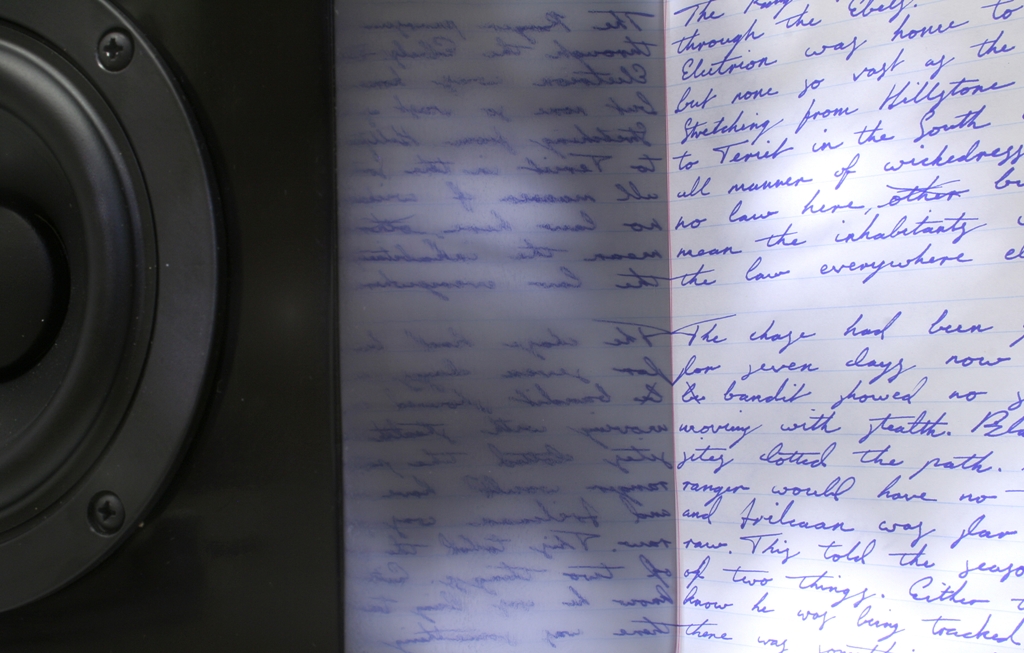 The
through the Ebels.
Elutrion was home to
but none so vast as the
Stretching from Hillstone
to Territ in the South
all manner of wickedness
no law here, other
mean the inhabitants
the law everywhere
The chase had been
for seven days now
the bandit showed no
moving with stealth.
sites dotted the path.
ranger would have no
and was far
raw. This told the
of two things. Either
know he was being tracked
there was